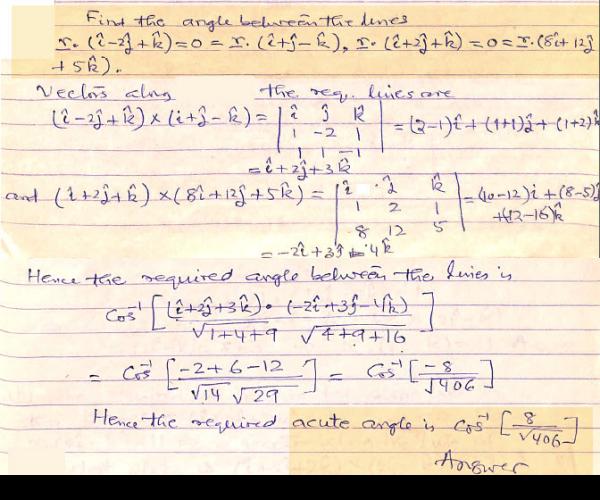 Find the angle between the lines
r. (î-2ĵ+k̂)=0 = r. (î+ĵ-k̂), r. (î+2ĵ+k̂)=0=r.(8î+12ĵ
+5k̂).
Vectors along the req. lines are
(î-2ĵ+k̂)×(î+ĵ-k̂)= | î ĵ k̂ | = (2-1)î+(1+1)ĵ+(1+2)k̂
1 -2 1
1 1 -1
= î+2ĵ+3k̂
and (î+2ĵ+k̂)×(8î+12ĵ+5k̂)= | î ĵ k̂ | =(10-12)î+(8-5)ĵ
1 2 1 +(12-16)k̂
8 12 5
= -2î+3ĵ-4k̂
Hence the required angle between the lines is
Cos⁻¹ [ (î+2ĵ+3k̂)•(-2î+3ĵ-4k̂) / √1+4+9 √4+9+16 ]
= Cos⁻¹ [ -2+6-12 / √14 √29 ] = Cos⁻¹ [ -8 / √406 ]
Hence the required acute angle is Cos⁻¹ [ 8 / √406 ]
Answer